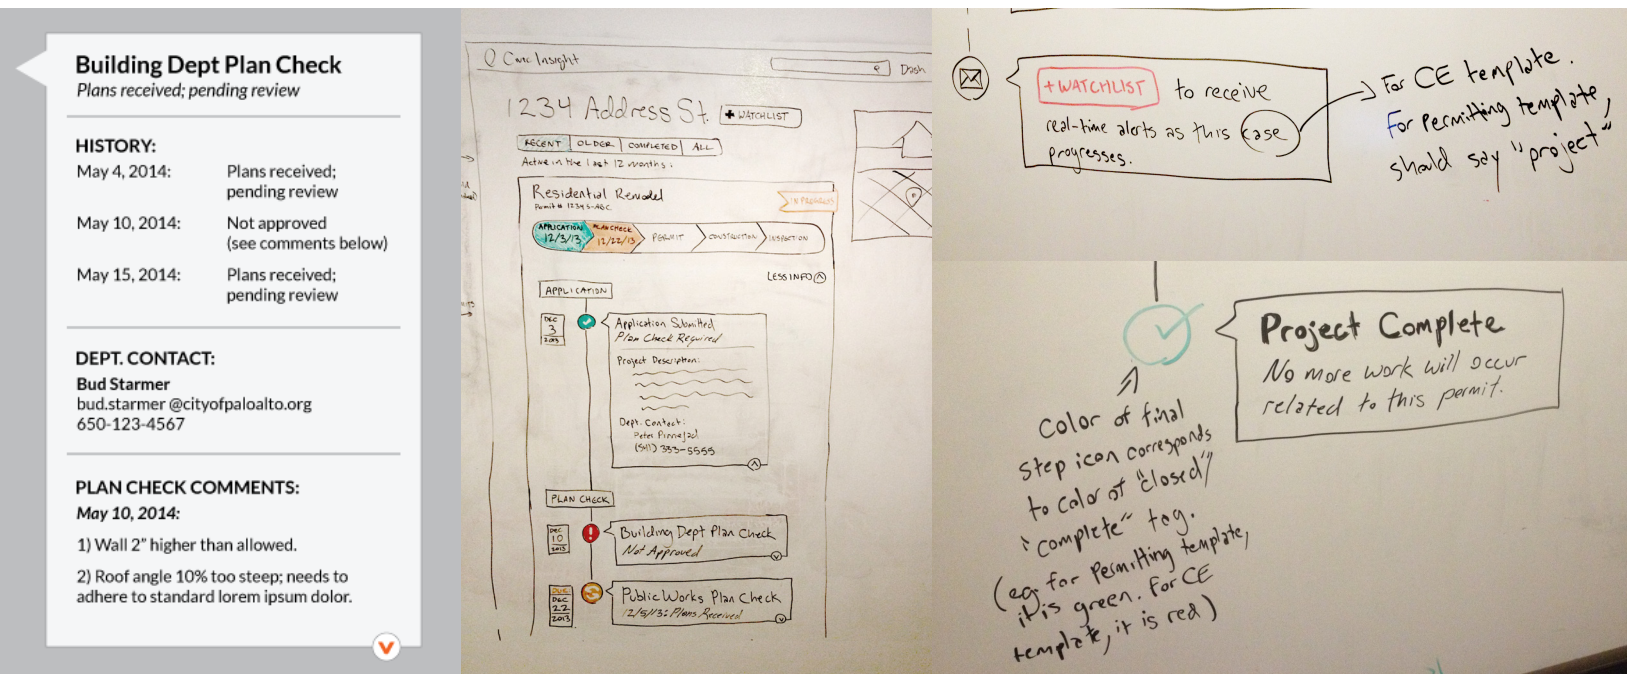 Building Dept Plan Check
Plans received; pending review
HISTORY:
May 4, 2014: Plans received;
pending review
May 10, 2014: Not approved
(see comments below)
May 15, 2014: Plans received;
pending review
DEPT. CONTACT:
Bud Starmer
bud.starmer @cityofpaloalto.org
650-123-4567
PLAN CHECK COMMENTS:
May 10, 2014:
1) Wall 2” higher than allowed.
2) Roof angle 10% too steep; needs to
adhere to standard lorem ipsum dolor.
Civic Insight
Dash
1234 Address St. +WATCHLIST
RECENT OLDER COMPLETED ALL
Active in the last 12 months:
Residential Remodel
Permit # 12345-ABC
IN PROGRESS
APPLICATION PLAN CHECK PERMIT CONSTRUCTION INSPECTION
12/3/13 12/22/13
LESS INFO
APPLICATION
DEC
3
2013
Application Submitted
Plan Check Required
Project Description:
Dept. Contact:
(511) 333-5555
PLAN CHECK
DEC
10
2013
Building Dept Plan Check
Not Approved
DUE
DEC
22
2013
Public Works Plan Check
12/5/13: Plans Received
+WATCHLIST to receive
real-time alerts as this case
progresses.
For CE template.
For Permitting template,
should say "project"
Project Complete
No more work will occur
related to this permit.
Color of final
step icon corresponds
to color of "closed"/
"complete" tag.
(eg. for Permitting template,
it is green. For CE
template, it is red)